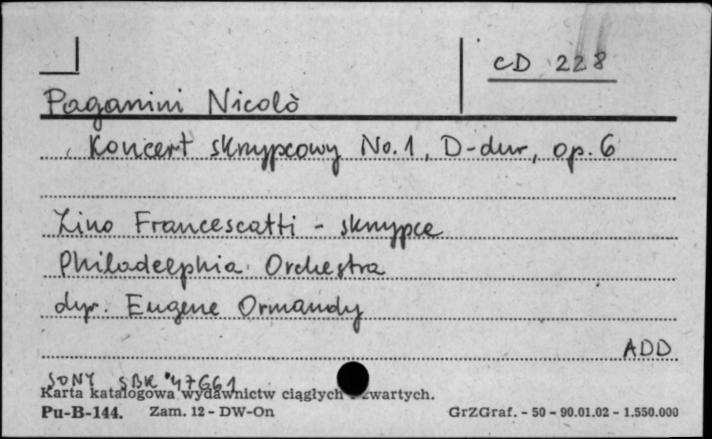 CD 228
Paganini Nicolò
Koncert skrzypcowy No. 1, D-dur, op. 6
Zino Francescatti - skrzypce
Philadelphia Orchestra
dyr. Eugene Ormandy
ADD
SONY SBK 47661
Karta katalogowa wydawnictw ciągłych i zwartych.
Pu-B-144. Zam. 12 - DW-On GrZGraf. - 50 - 90.01.02 - 1.550.000